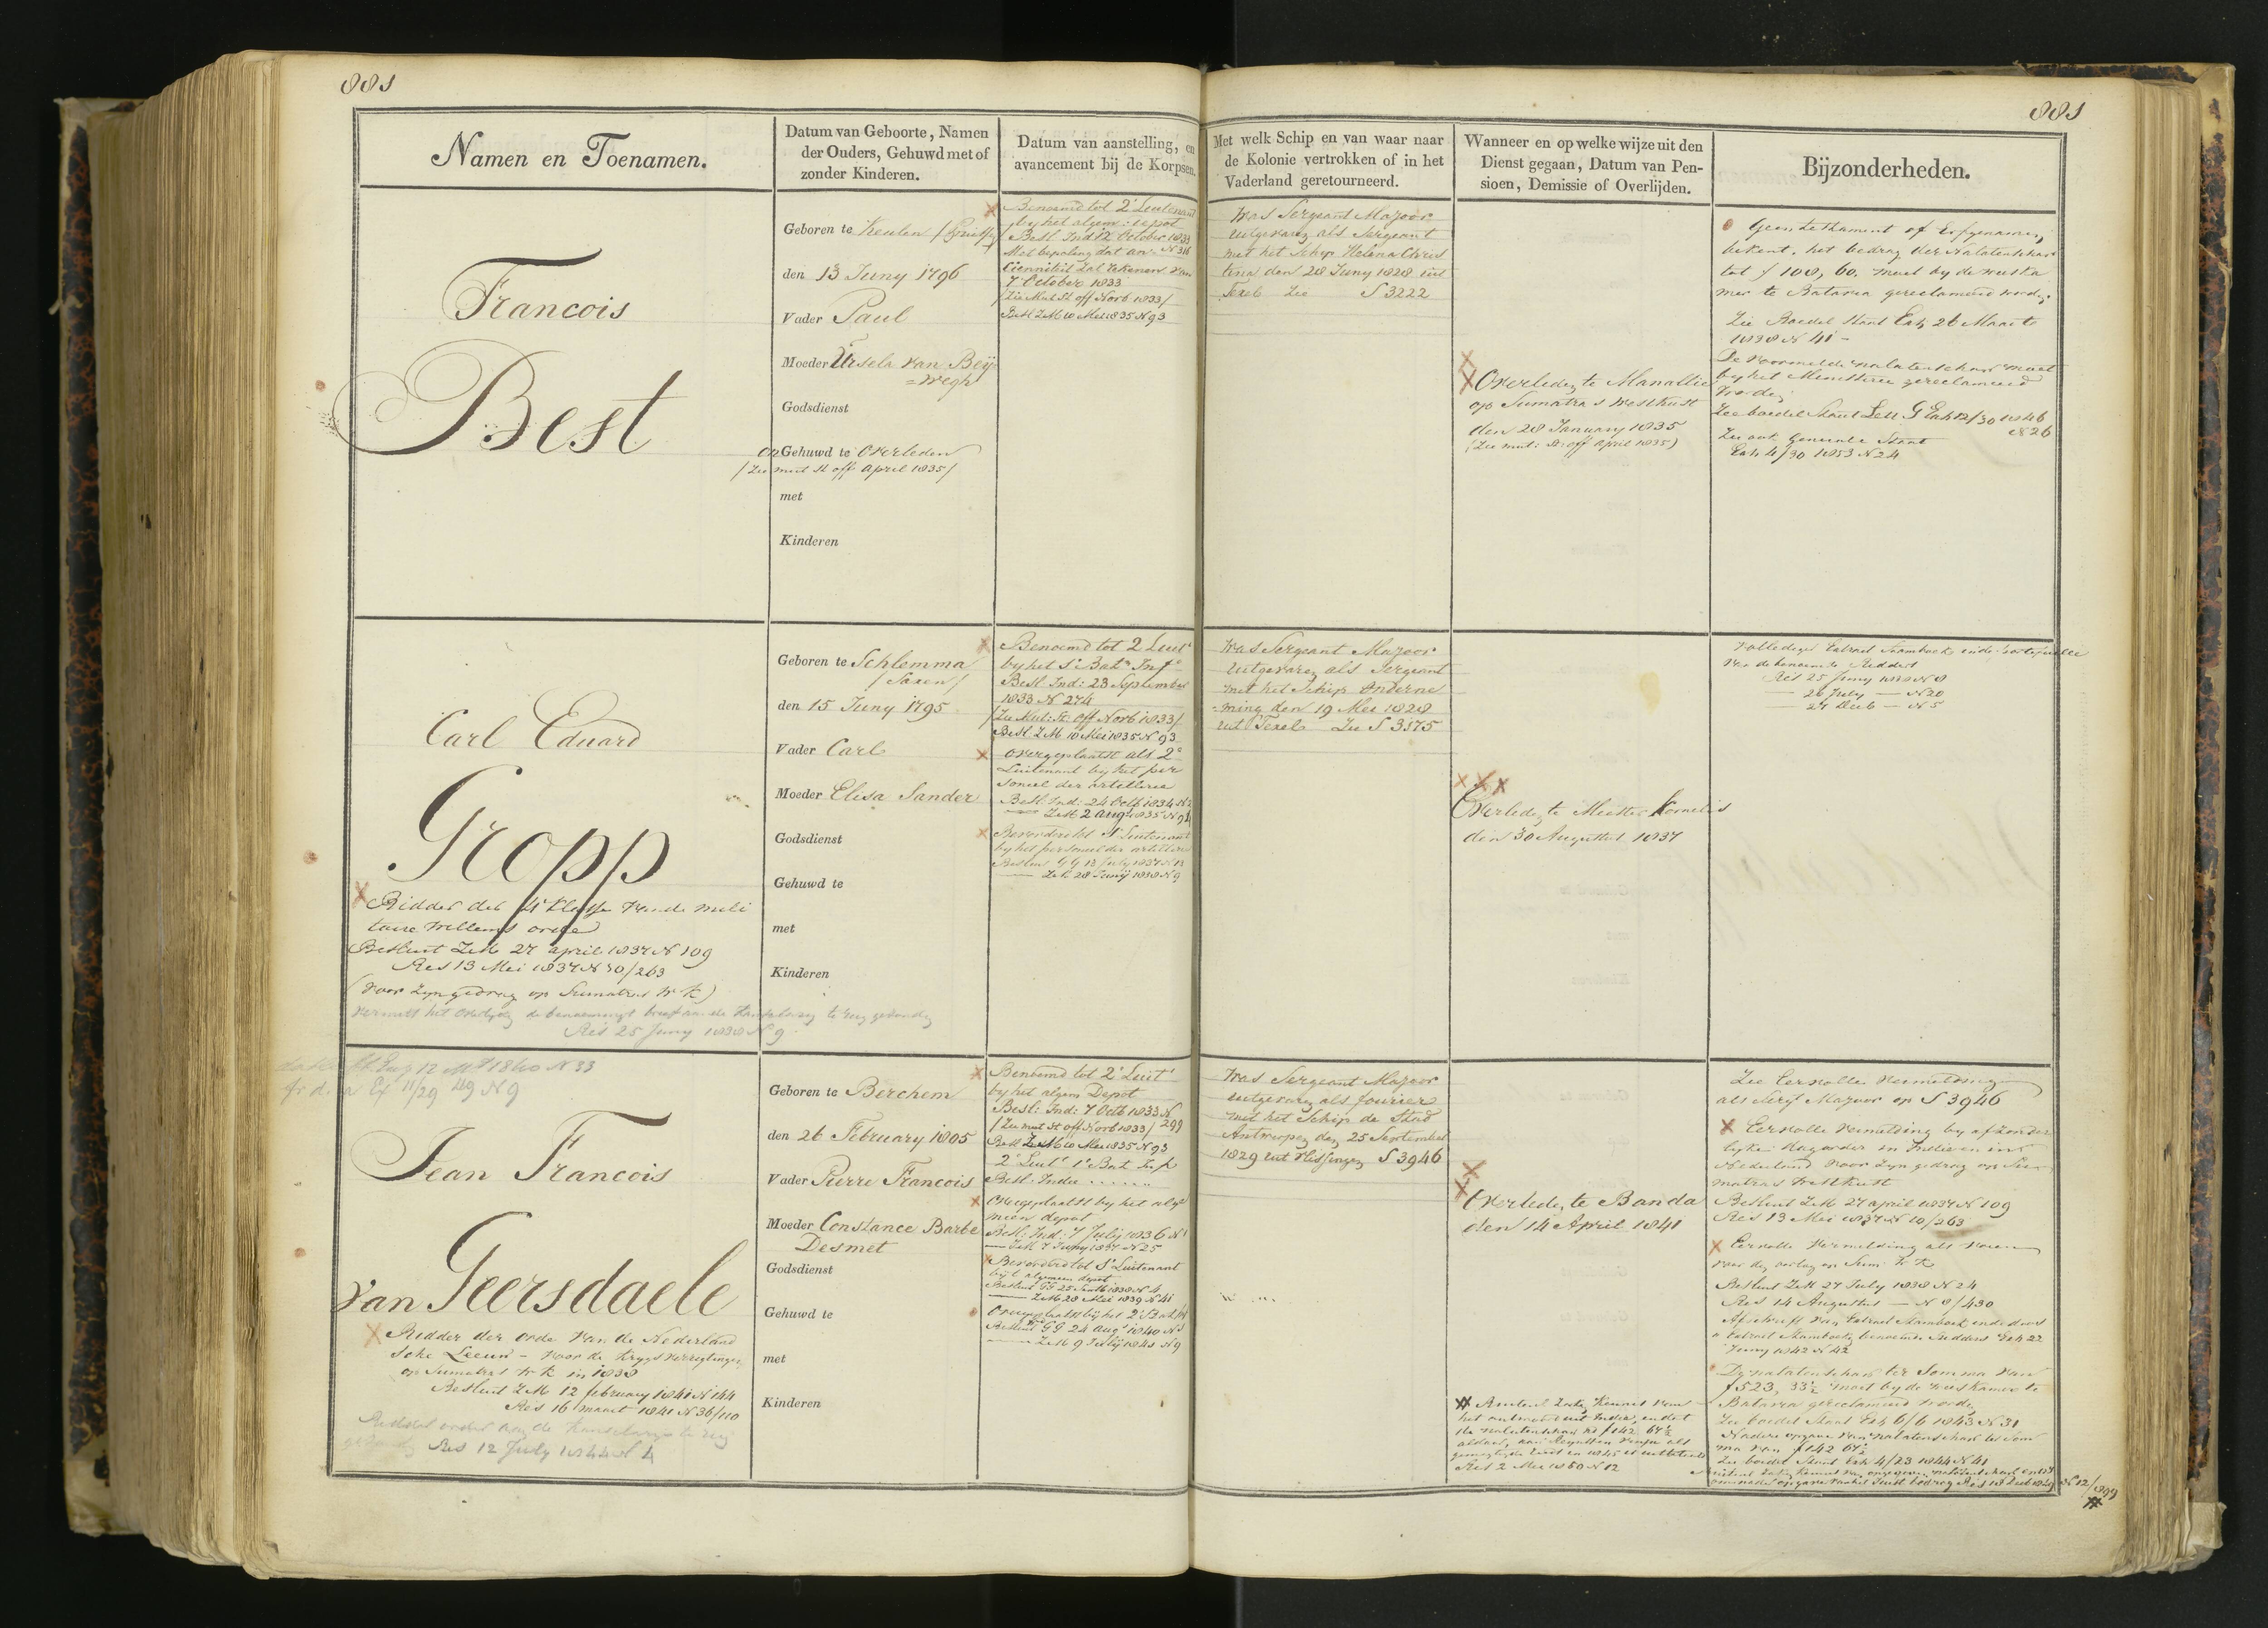 881
881
Namen en Toenamen.
Datum van Geboorte, Namen
der Ouders, Gehuwd met of
zonder Kinderen.
Datum van aanstelling, en
avancement bij de Korpsen.
Met welk Schip en van waar naar
de Kolonie vertrokken of in het
Vaderland geretourneerd.
Wanneer en op welke wijze uit den
Dienst gegaan, Datum van Pen-
sioen, Demissie of Overlijden.
Bijzonderheden.
Francois
Best
Geboren te Keulen
den 13 Juny 1796
Vader Paul
Moeder Ursela van Beij
=wegh
Godsdienst
Gehuwd te Overleden
/Zie mut st off April 1835/
met
Kinderen
Benoemd tot 2e Luitenant
by het algem: depot
Besl. Ind 12 October 1833
N 316
Met bepaling dat an-
cienniteit zal rekenen van
7 October 1833
/Zie Mut St off Novb 1833/
Besl ZM 10 Mei 1835 N 93
Was Sergeant Majoor
uitgevaren als Sergeant
met het Schip Helena Chris
tina den 28 Juny 1828 uit
Texel Zie S 3222
Overleden te Manallie
op Sumatra s Westkust
den 28 January 1835
(Zie mut: st: off April 1835)
Geen testament of Erfgenamen
bekent. het bedrag der Nalatenschap
tot f 108, 60. moet by de weeska
mer te Batavia gereclameerd worden.
Zie Boedel Staat Exh 26 Maart
1838 N 41 -
De voormelde nalatenschap moet
by het Ministerie gereclameerd
worden
Zie boedel Staat Lett G Exh 12/30 1846
N 26
Zie ook Generale Staat
Exh 4/30 1853 N 24
Carl Eduard
Gropp
Ridder der 4e Klasse van de mili
taire Willems orde
Besluit ZM 27 april 1837 N 109
Res 13 Mei 1837 N 10/263
(voor zyn gedrag op Sumatras W K)
Res 25 Juny 1838 N 9
Geboren te Schlemma
/Saxen/
den 15 Juny 1795
Vader Carl
Moeder Elisa Sander
Godsdienst
Gehuwd te
met
Kinderen
Benoemd tot 2 Luit
by het 1e Batn Infe
Besl. Ind: 23 September
1833 N 274
/Zie Mut: St: Off Novb 1833/
Besl. ZM 10 Mei 1835 N 93
Overgeplaatst als 2e
Luitenant by het per
soneel der artillerie
Besl: Ind: 24 Octb 1834 N 2
ZM 2 Aug 1835 N 91
Bevorderd tot 1e Luitenant
by het personeel der artillerie
Besluit GG 13 July 1837 N 13
ZM 28 Junij 1838 N 9
Was Sergeant Majoor
uitgevaren als Sergeant
met het Schip Onderne
=ming den 19 Mei 1828
uit Texel Zie S 3175
Overleden te Meester Kornelis
den 30 Augustus 1837
Volledige Extract Stamboek in de portefeuille
van de benoemde Ridders
Res 25 Juny 1838 N 8
— 26 July — N 20
— 27 Decb — N 5
Jean Francois
van Geersdaele
Ridder der orde van de Nederland
sche Leeuw - voor de krygsverrigtingen
op Sumatras W K in 1838
Besluit ZM 12 february 1841 N 144
Res 16 maart 1841 N 36/110
Res 12 July 1844 N 4
Geboren te Berchem
den 26 February 1805
Vader Pierre Francois
Moeder Constance Barbe
Desmet
Godsdienst
Gehuwd te
met
Kinderen
Benoemd tot 2e Luit
by het algem Depot
Besl: Ind: 7 Octb 1833 N
299
/Zie mut St off Novb 1833/
Besl ZM 10 Mei 1835 N 93
2e Luit 1e Bat Inf
Besl: Indie . . . . . .
Overgeplaatst by het alge
meen depot
Besl: Ind: 7 July 1836 N 1
ZM 7 Juny 1837 N 25
Bevorderd tot 1e Luitenant
by 't algemeen depot
Besluit GG 25 Septb 1838 N 4
ZM 28 Mei 1839 N 41
Overgeplaatst bij het 2e Bat Inf
Besluit GG 24 Aug 1840 N 3
ZM 9 July 1841 N 9
Was Sergeant Majoor
uitgevaren als fourier
met het Schip de Stad
Antwerpen den 25 September
1829 uit Vlissingen S 3946
Overleden te Banda
den 14 April 1841
het antwoord uit Indie, en dat
de nalatenschap ad f 142, 67½
Res 2 Mei 1850 N 12
Zie Eervolle Vermelding
als Serjt Majoor op S 3946
Eervolle vermelding by afzonder
lyke dagorder in Indie en in
Nederland voor zyn gedrag op Su-
matras Westkust
Besluit ZM 27 april 1837 N 109
Res 13 Mei 1837 N 10/263
Eervolle Vermelding als voren
voor den oorlog op Sum: W K
Besluit ZM 27 July 1838 N 24
Res 14 Augustus — N 8/430
Afschrift van Extract Stamboek in de doos
Extract Stamboeken benoemde Ridders Exh 22
Juny 1842 N 42
De nalatenschap ter Somma van
f 523, 33½ moet by de weeskamer te
Batavia gereclameerd worden
Zie boedel Staat Exh 6/6 1843 N 31
Nadere opgave van nalatenschap ter Som
ma van f 142 67½
Zie boedel Staat Exh 4/23 1844 N 41
N 12/899